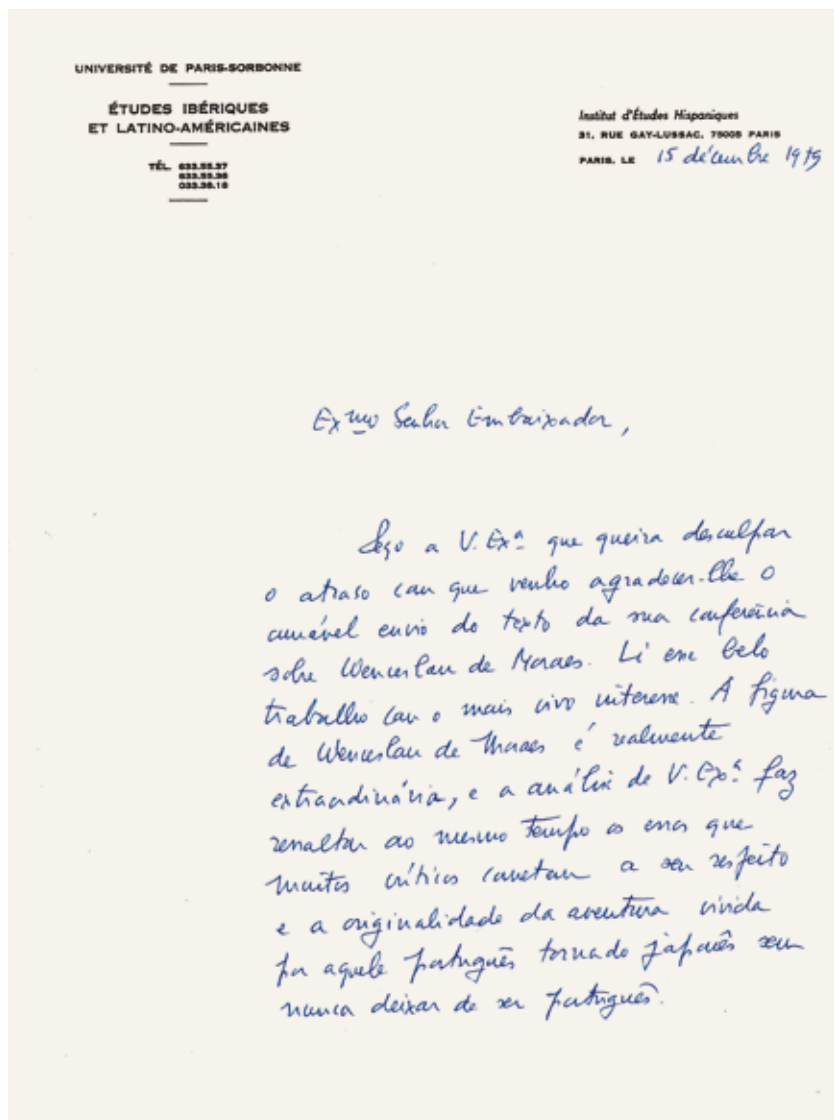 UNIVERSITÉ DE PARIS-SORBONNE
ÉTUDES IBÉRIQUES
ET LATINO-AMÉRICAINES
TÉL. 633.55.37
633.55.38
033.38.18
Institut d'Études Hispaniques
31, RUE GAY-LUSSAC, 75005 PARIS
PARIS, LE 15 décembre 1979
Exmo Senhor Embaixador,
Peço a V. Exª que queira desculpar
o atraso com que venho agradecer-lhe o
amável envio do texto da sua conferência
sobre Wenceslau de Moraes. Li esse belo
trabalho com o mais vivo interesse. A figura
de Wenceslau de Moraes é realmente
extraordinária, e a análise de V. Exª. faz
ressaltar ao mesmo tempo os erros que
muitos críticos cometem a seu respeito
e a originalidade da aventura vivida
por aquele português tornado japonês sem
nunca deixar de ser português.